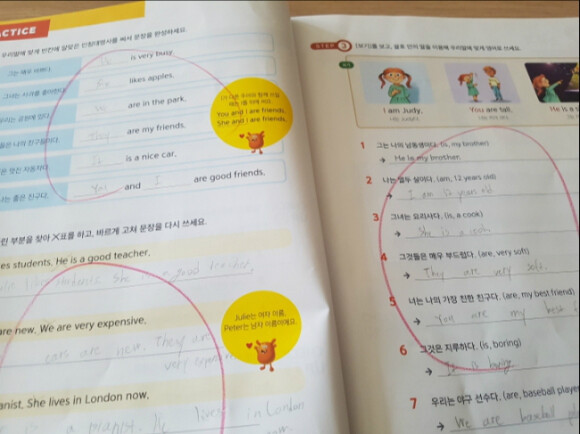 ACTICE
우리말에 맞게 빈칸에 알맞은 인칭대명사를 써서 문장을 완성하세요.
is very busy.
likes apples.
are in the park.
They are my friends.
It is a nice car.
You and I are good friends.
You and I are friends.
She and I are friends.
린 부분을 찾아 X표를 하고, 바르게 고쳐 문장을 다시 쓰세요.
es students. He is a good teacher.
good teacher.
Julie는 여자 이름,
Peter는 남자 이름이에요.
are new. We are very expensive.
cars are new. They are
very expensive
anist. She lives in London now.
a pianist. He lives in London
now.
STEP 3 [보기]를 보고, 괄호 안의 말을 이용해 우리말에 맞게 영어로 쓰세요.
I am Judy.
You are tall.
He is a
1 그는 나의 남동생이다. (is, my brother)
→ He is my brother.
2 나는 열두 살이다. (am, 12 years old)
→ I am 12 years old
3 그녀는 요리사다. (is, a cook)
→ She is a cook.
4 그것들은 매우 부드럽다. (are, very soft)
→ They are very soft.
5 너는 나의 가장 친한 친구다. (are, my best friend)
→ You are my best
6 그것은 지루하다. (is, boring)
→ It is boring
7 우리는 야구 선수다. (are, baseball player
→ We are baseball